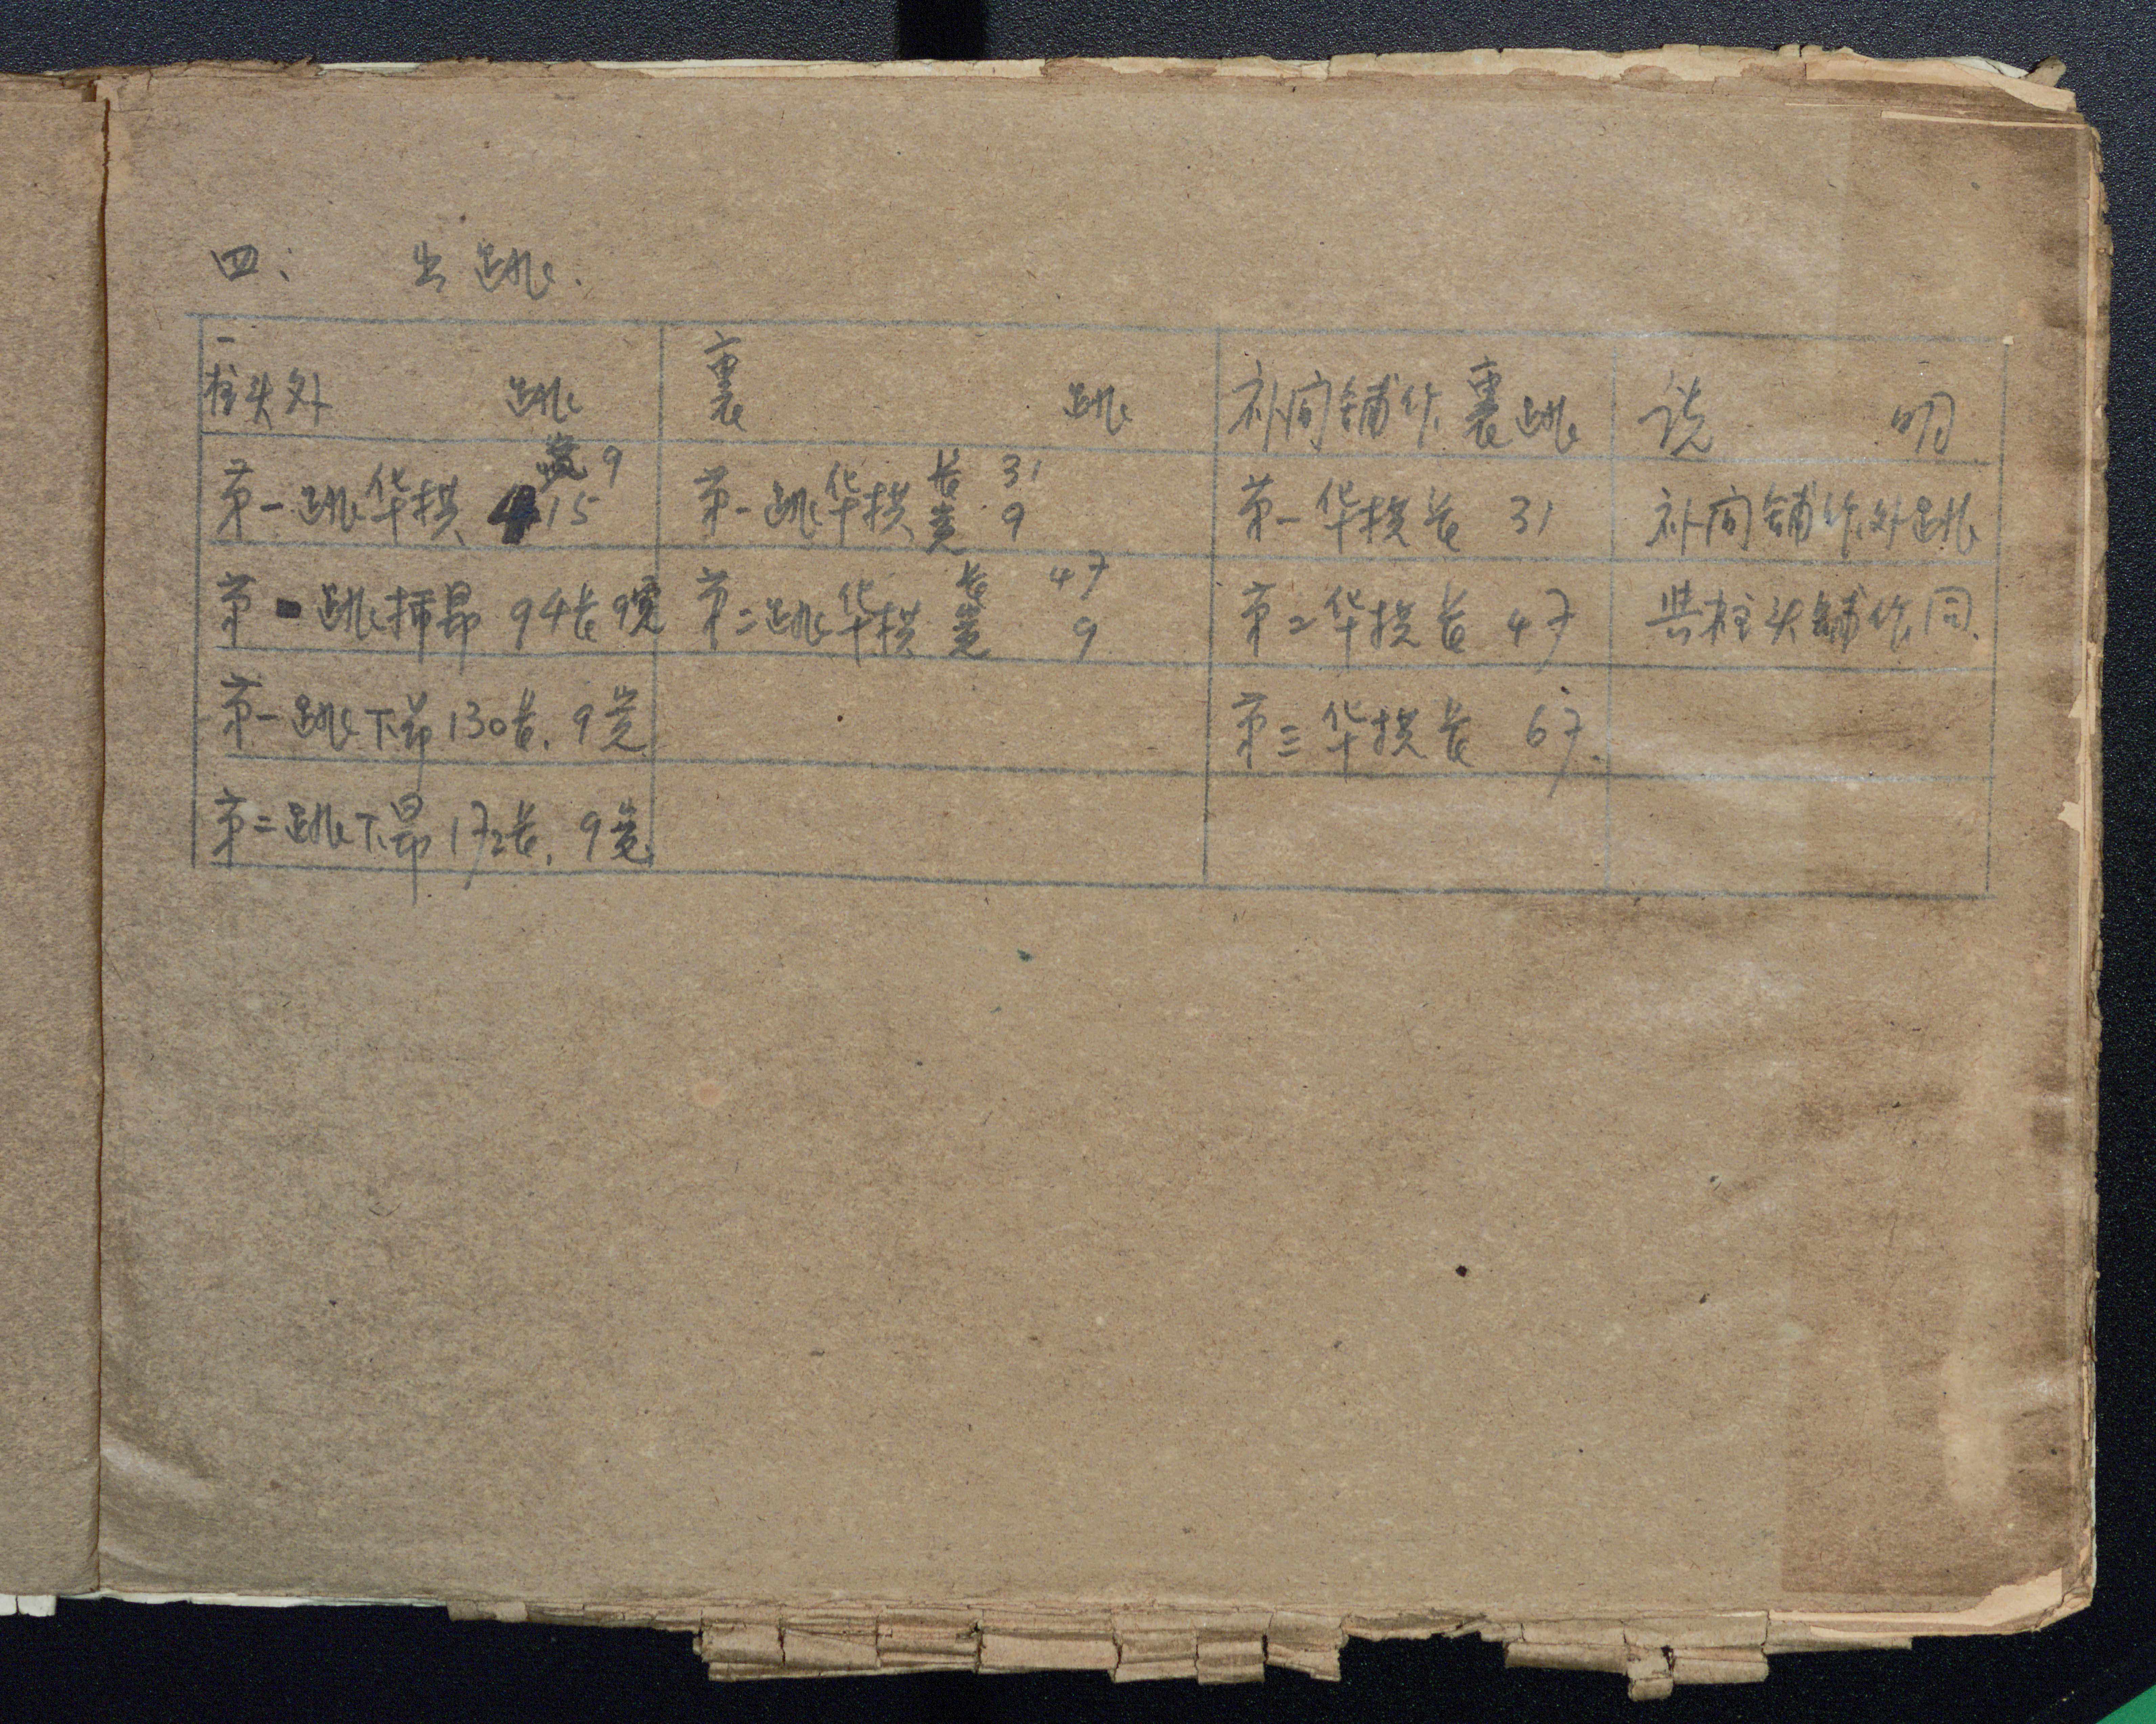 四: 出跳.
柱头外 跳 裏 跳 补间铺作裏跳 说 明
宽9 长 31
第一跳华拱 15 第一跳华拱 宽 9 第一华拱长 31 补间铺作外跳
长 47
第 跳插昂 94长9宽 第二跳华拱 宽 9 第二华拱长 47 与柱头铺作同.
第一跳下昂130长, 9宽 第三华拱长 67.
第二跳下昂172长, 9宽